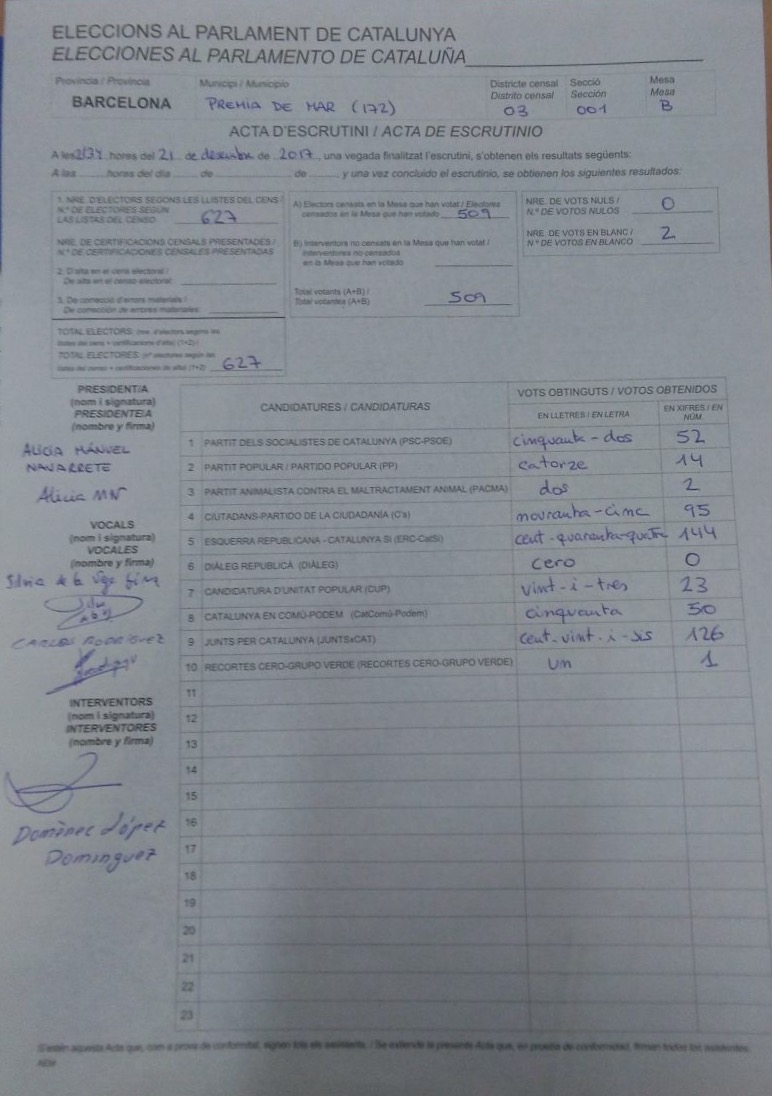 ELECCIONS AL PARLAMENT DE CATALUNYA
ELECCIONES AL PARLAMENTO DE CATALUÑA
Província / Provincia
Municipi / Municipio
Districte censal
Distrito censal
Secció
Sección
Mesa
Mesa
BARCELONA
PREMIA DE MAR (172)
03
001
B
ACTA D'ESCRUTINI / ACTA DE ESCRUTINIO
A les hores del 21 de desembre de 2017, una vegada finalitzat l'escrutini, s'obtenen els resultats següents:
A las horas del día de de , y una vez concluido el escrutinio, se obtienen los siguientes resultados:
1. NRE. D'ELECTORS SEGONS LES LLISTES DEL CENS /
N.º DE ELECTORES SEGÚN
LAS LISTAS DEL CENSO 627
NRE. DE CERTIFICACIONS CENSALS PRESENTADES /
N.º DE CERTIFICACIONES CENSALES PRESENTADAS
2. D'alta en el cens electoral /
De alta en el censo electoral:
3. De correcció d'errors materials /
De corrección de errores materiales:
TOTAL ELECTORS: (nre. d'electors segons les
llistes del cens + certificacions d'alta) (1+2) /
TOTAL ELECTORES: (nº electores según las
listas del censo + certificaciones de alta) (1+2) 627
A) Electors censats en la Mesa que han votat / Electores
censados en la Mesa que han votado 509
B) Interventors no censats en la Mesa que han votat /
Interventores no censados
en la Mesa que han votado
Total votants (A+B) /
Total votantes (A+B) 509
NRE. DE VOTS NULS /
N.º DE VOTOS NULOS 0
NRE. DE VOTS EN BLANC /
N.º DE VOTOS EN BLANCO 2
PRESIDENT/A
(nom i signatura)
PRESIDENTE/A
(nombre y firma)
ALICIA MÁNUEL
NAVARRETE
Alicia MN
VOCALS
(nom i signatura)
VOCALES
(nombre y firma)
Silvia de la Vega
CARLOS RODRÍGUEZ
INTERVENTORS
(nom i signatura)
INTERVENTORES
(nombre y firma)
Domènec López
Dominguez
CANDIDATURES / CANDIDATURAS
VOTS OBTINGUTS / VOTOS OBTENIDOS
EN LLETRES / EN LETRA
EN XIFRES / EN NÚM.
1 PARTIT DELS SOCIALISTES DE CATALUNYA (PSC-PSOE) cinquanta-dos 52
2 PARTIT POPULAR / PARTIDO POPULAR (PP) catorze 14
3 PARTIT ANIMALISTA CONTRA EL MALTRACTAMENT ANIMAL (PACMA) dos 2
4 CIUTADANS-PARTIDO DE LA CIUDADANÍA (C's) novranta-cinc 95
5 ESQUERRA REPUBLICANA - CATALUNYA SÍ (ERC-CatSí) cent-quaranta-quatre 144
6 DIÀLEG REPUBLICÀ (DIÀLEG) cero 0
7 CANDIDATURA D'UNITAT POPULAR (CUP) vint-i-tres 23
8 CATALUNYA EN COMÚ-PODEM (CatComú-Podem) cinquanta 50
9 JUNTS PER CATALUNYA (JUNTSxCAT) cent-vint-i-sis 126
10 RECORTES CERO-GRUPO VERDE (RECORTES CERO-GRUPO VERDE) un 1
11
12
13
14
15
16
17
18
19
20
21
22
23
S'estén aquesta Acta que, com a prova de conformitat, signen tots els assistents. / Se extiende la presente Acta que, en prueba de conformidad, firman todos los asistentes.